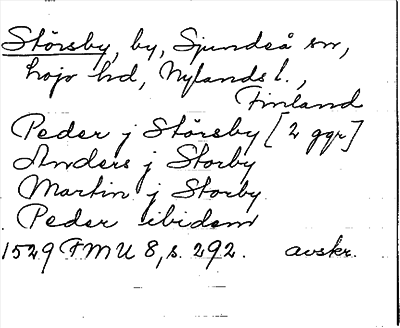 Störsby, by, Sjundeå sn,
Lojo hd, Nylands l.,
Finland
Peder j Störsby [2 ggr]
Anders j Storby
Martin j Storby
Peder ibidem
1529 FMU 8, s. 292. avskr.